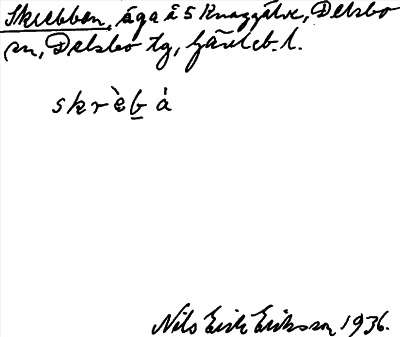 Skrebben, äga å 5 Knaggälve, Delsbo
sn, Delsbo tg, Gävleb. l.
skrèb̲á
Nils Erik Eriksson 1936.